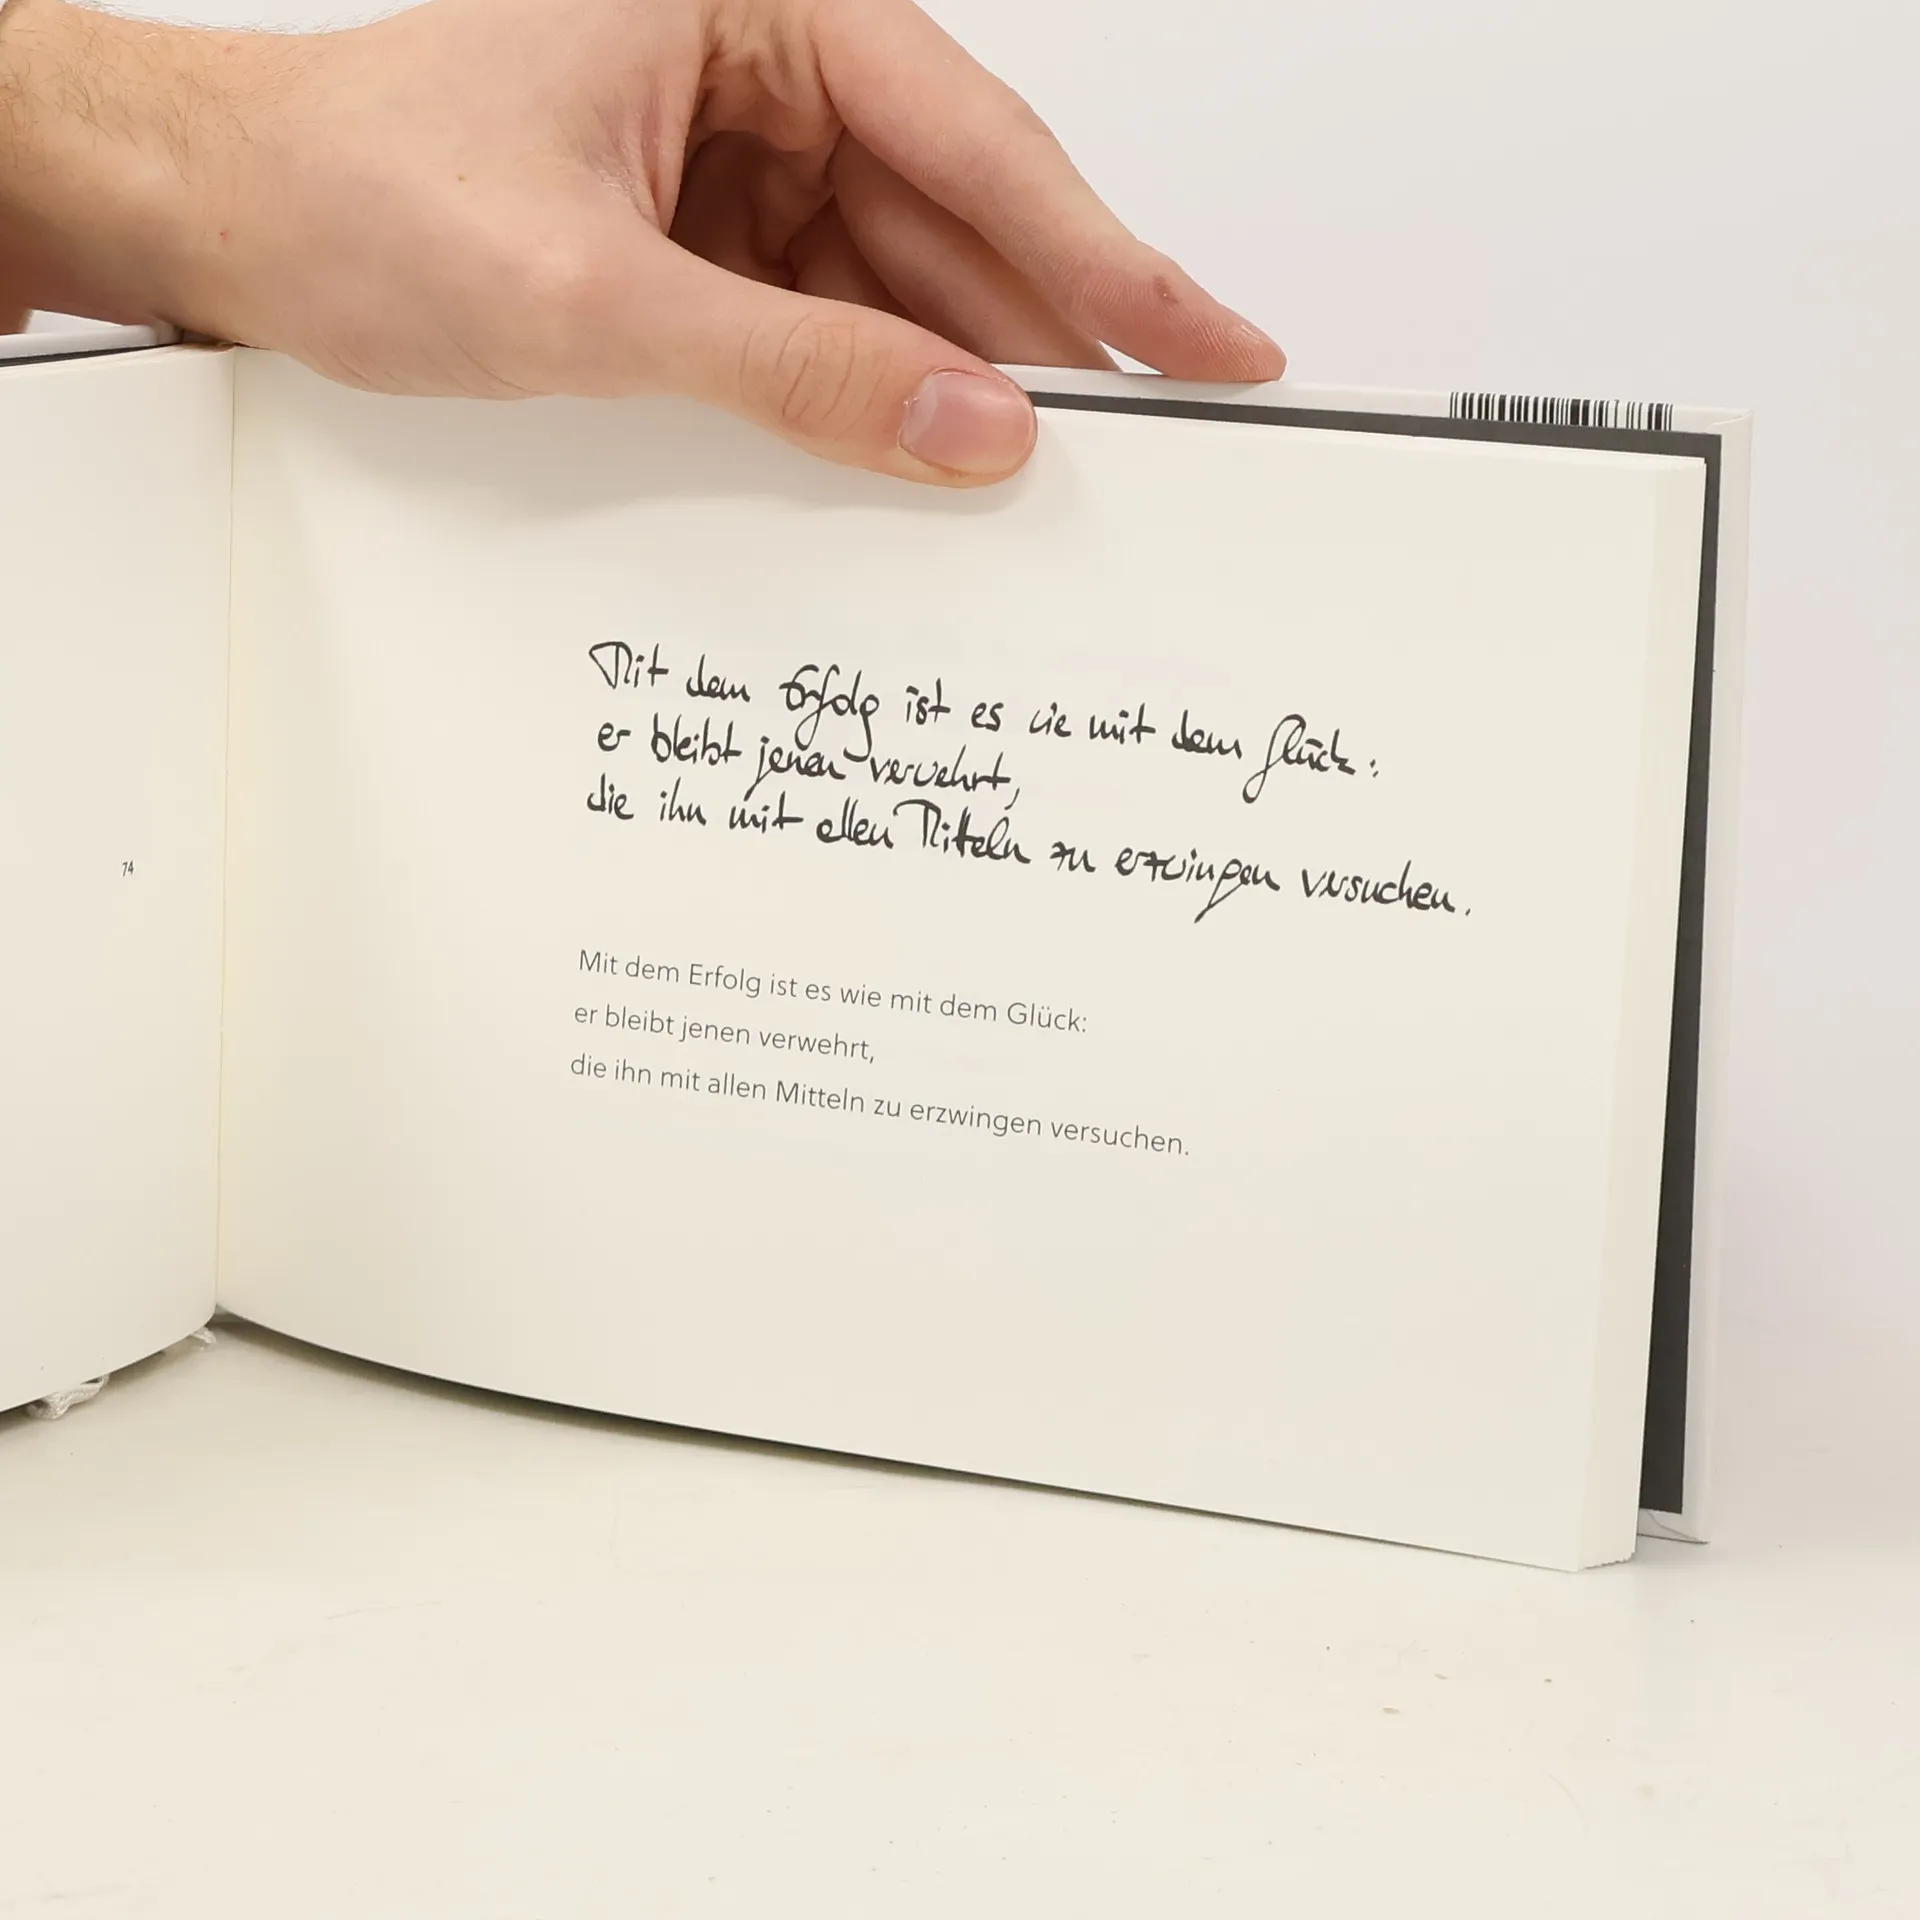 74
Mit dem Erfolg ist es wie mit dem Glück:
er bleibt jenen verwehrt,
die ihn mit allen Mitteln zu erzwingen versuchen.
Mit dem Erfolg ist es wie mit dem Glück:
er bleibt jenen verwehrt,
die ihn mit allen Mitteln zu erzwingen versuchen.